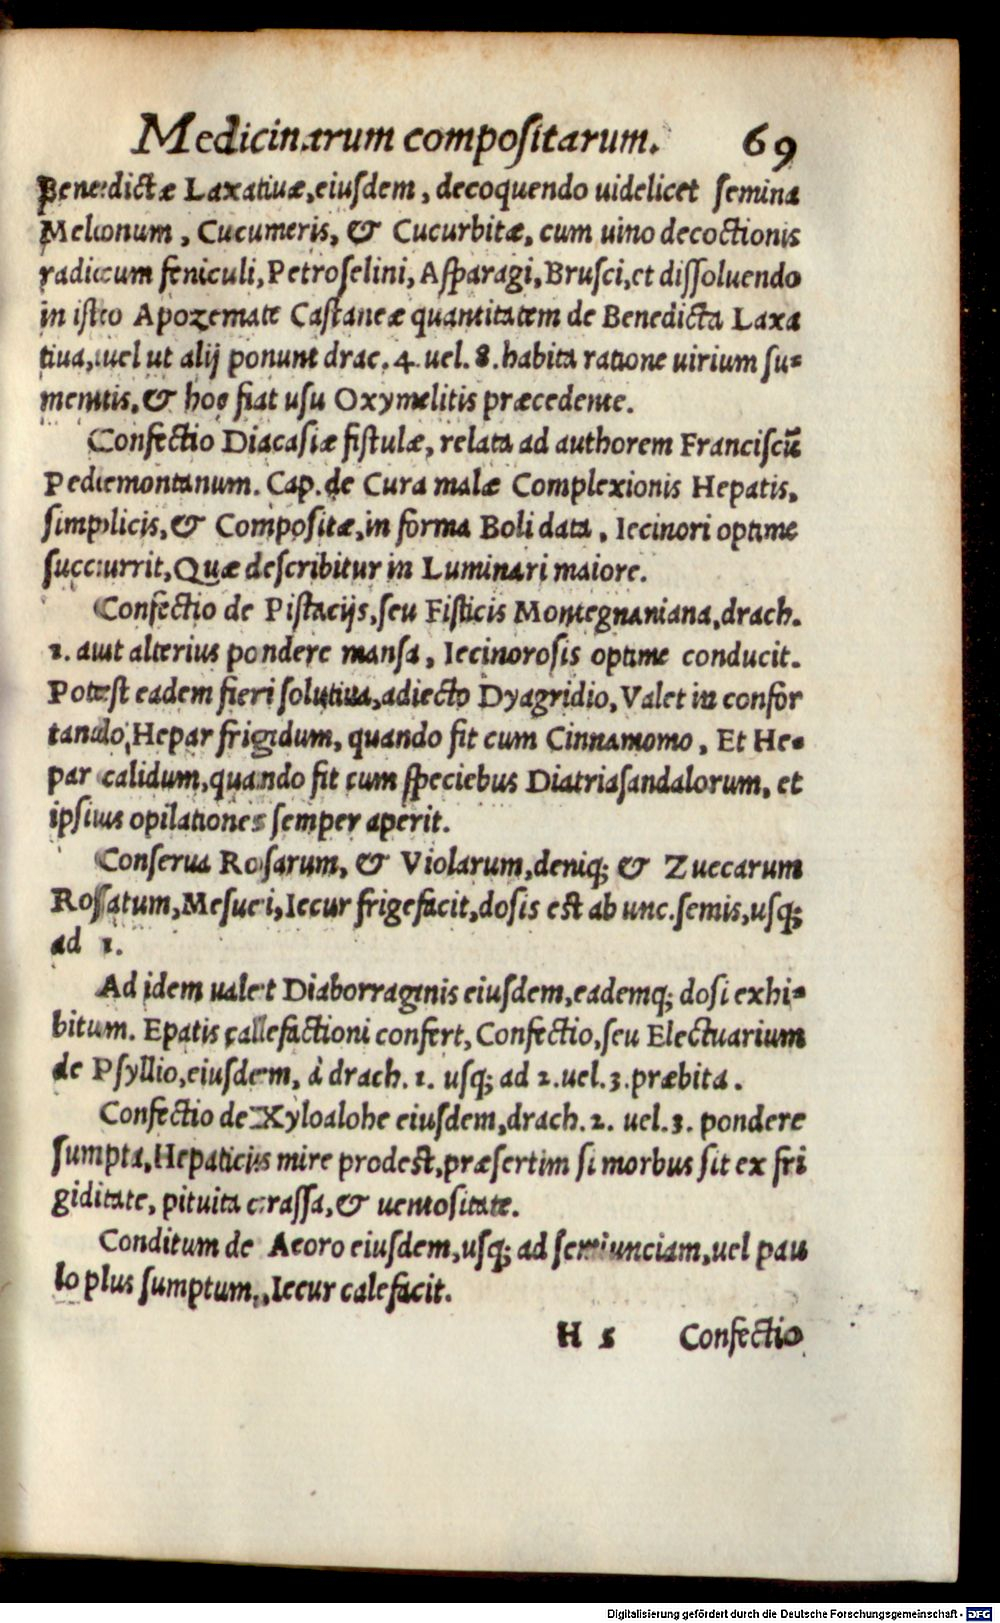 Medicinarum compositarum. 69
Benedictæ Laxatiuæ, eiusdem, decoquendo uidelicet semina
Melonum, Cucumeris, & Cucurbitæ, cum uino decoctionis
radicum feniculi, Petroselini, Asparagi, Brusci, et dissoluendo
in isto Apozemate Castaneæ quantitatem de Benedicta Laxa
tiua, uel ut alij ponunt drac. 4. uel. 8. habita ratione uirium su-
mentis, & hoc fiat usu Oxymelitis præcedente.
Confectio Diacasiæ fistulæ, relata ad authorem Franciscū
Pedemontanum. Cap. de Cura malæ Complexionis Hepatis,
simplicis, & Compositæ, in forma Boli data, Iecinori optime
succurrit, Quæ describitur in Luminari maiore.
Confectio de Pistacijs, seu Fisticis Montegnaniana, drach.
1. aut alterius pondere mansa, Iecinorosis optime conducit.
Potest eadem fieri solutiua, adiecto Dyagridio, Valet in confor
tando Hepar frigidum, quando fit cum Cinnamomo, Et He-
par calidum, quando fit cum speciebus Diatriasandalorum, et
ipsius opilationes semper aperit.
Conserua Rosarum, & Violarum, deniq; & Zuccarum
Rossatum, Mesuei, Iecur frigefacit, dosis est ab unc. semis, usq;
ad 1.
Ad idem valet Diaborraginis eiusdem, eademq; dosi exhi-
bitum. Epatis callefactioni confert, Confectio, seu Electuarium
de Psyllio, eiusdem, à drach. 1. usq; ad 2. uel. 3. præbita.
Confectio de Xyloalohe eiusdem, drach. 2. uel. 3. pondere
sumpta, Hepaticis mire prodest, præsertim si morbus sit ex fri
giditate, pituita crassa, & uentositate.
Conditum de Acoro eiusdem, usq; ad semiunciam, uel pau
lo plus sumptum, Iecur calefacit.
H 5 Confectio
Digitalisierung gefördert durch die Deutsche Forschungsgemeinschaft - DFG